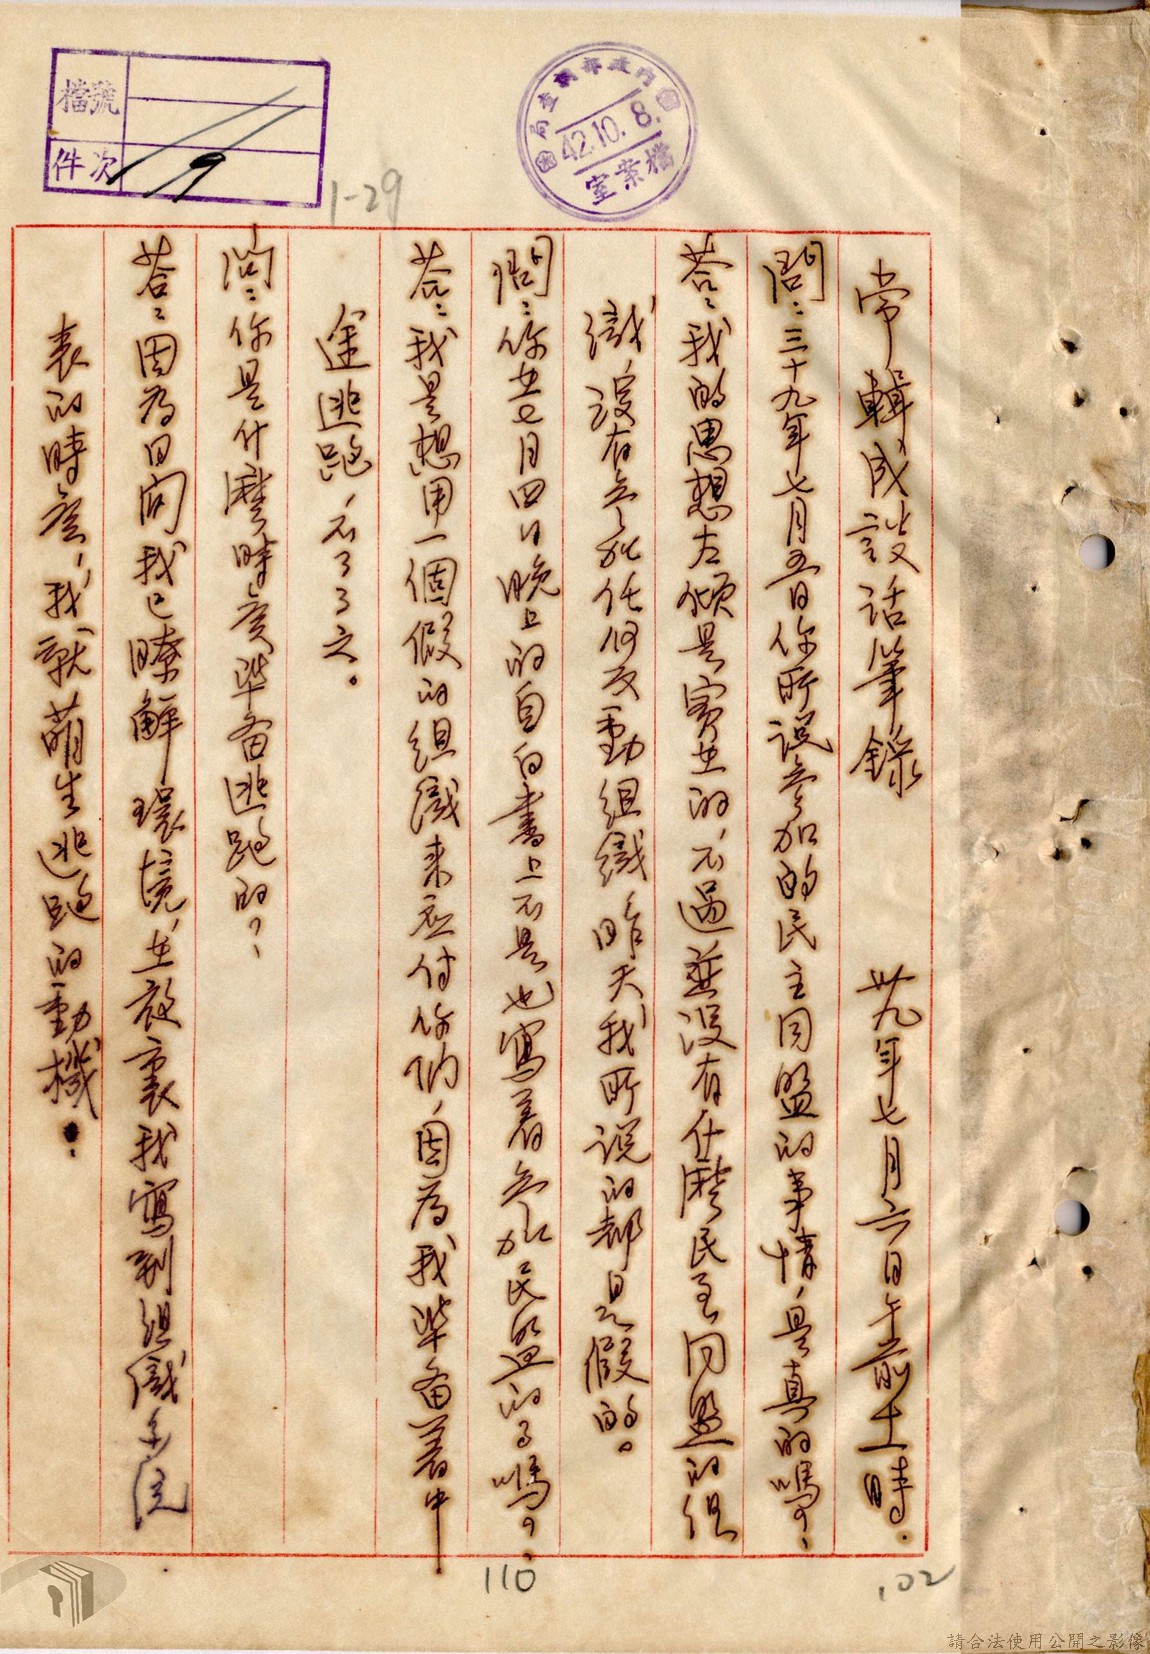 檔號
件次 19
1-29
內政部調查局
42.10.8.
檔案室
常輯成談话筆錄　卅九年七月六日午前十時.
問：三十九年七月五日你所説參加的民主同盟的事情，是真的嗎？
荅：我的思想左傾是實在的，不過並没有什麽民主同盟的組
織，没有參加任何反動組織，昨天我所説的都是假的。
問：你在七月四日晚上的自白書上不是也寫着參加民盟的事嗎？
荅：我是想用一個假的组織来应付你们，因為我準备着中
途逃跑，不了了之。
問：你是什麽時候準备逃跑的？
荅：因為日间我已瞭解環境，在夜裏我寫到组織系统
表的時候，我就萌生逃跑的動機：
110
102
請合法使用公開之影像